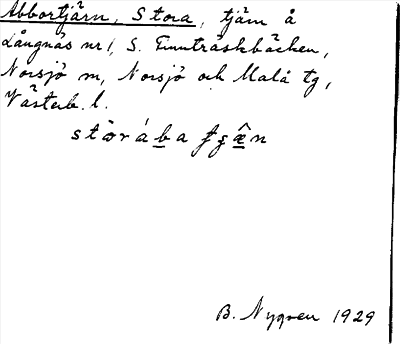 Abbortjärn, Stora, tjärn å
Långnäs nr 1, S. Finnträskbäcken,
Norsjö sn, Norsjö och Malå tg,
Västerb. l.
B. Nyqven 1929